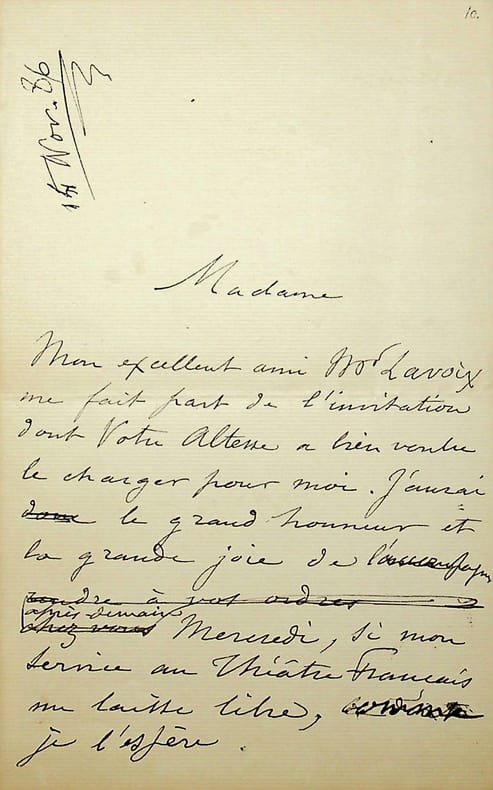 10.
Nov. 86
Madame
Mon excellent ami Mr Lavoix
me fait part de l'invitation
dont Votre Altesse a bien voulu
le charger pour moi. J'aurai
donc le grand honneur et
la grande joie de l'accompagner
rendre à vos ordres
après demain
chez vous Mercredi, si mon
service au Théâtre Français
me laisse libre, comme
je l'espère.